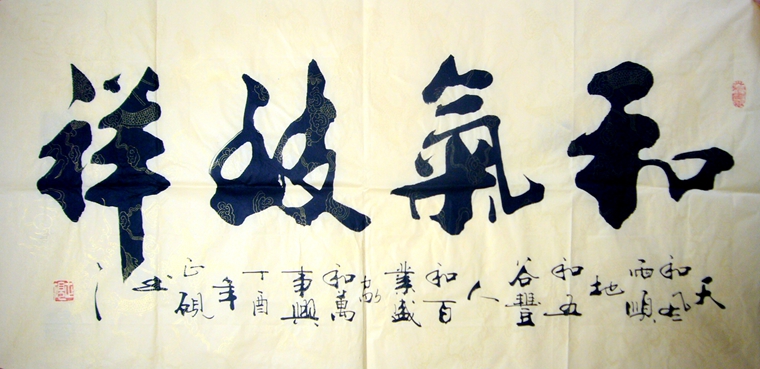 和氣致祥
天
和風
雨順
地
和五
谷豐
人
和百
業盛
家
和萬
事興
丁酉
年
正硯
书